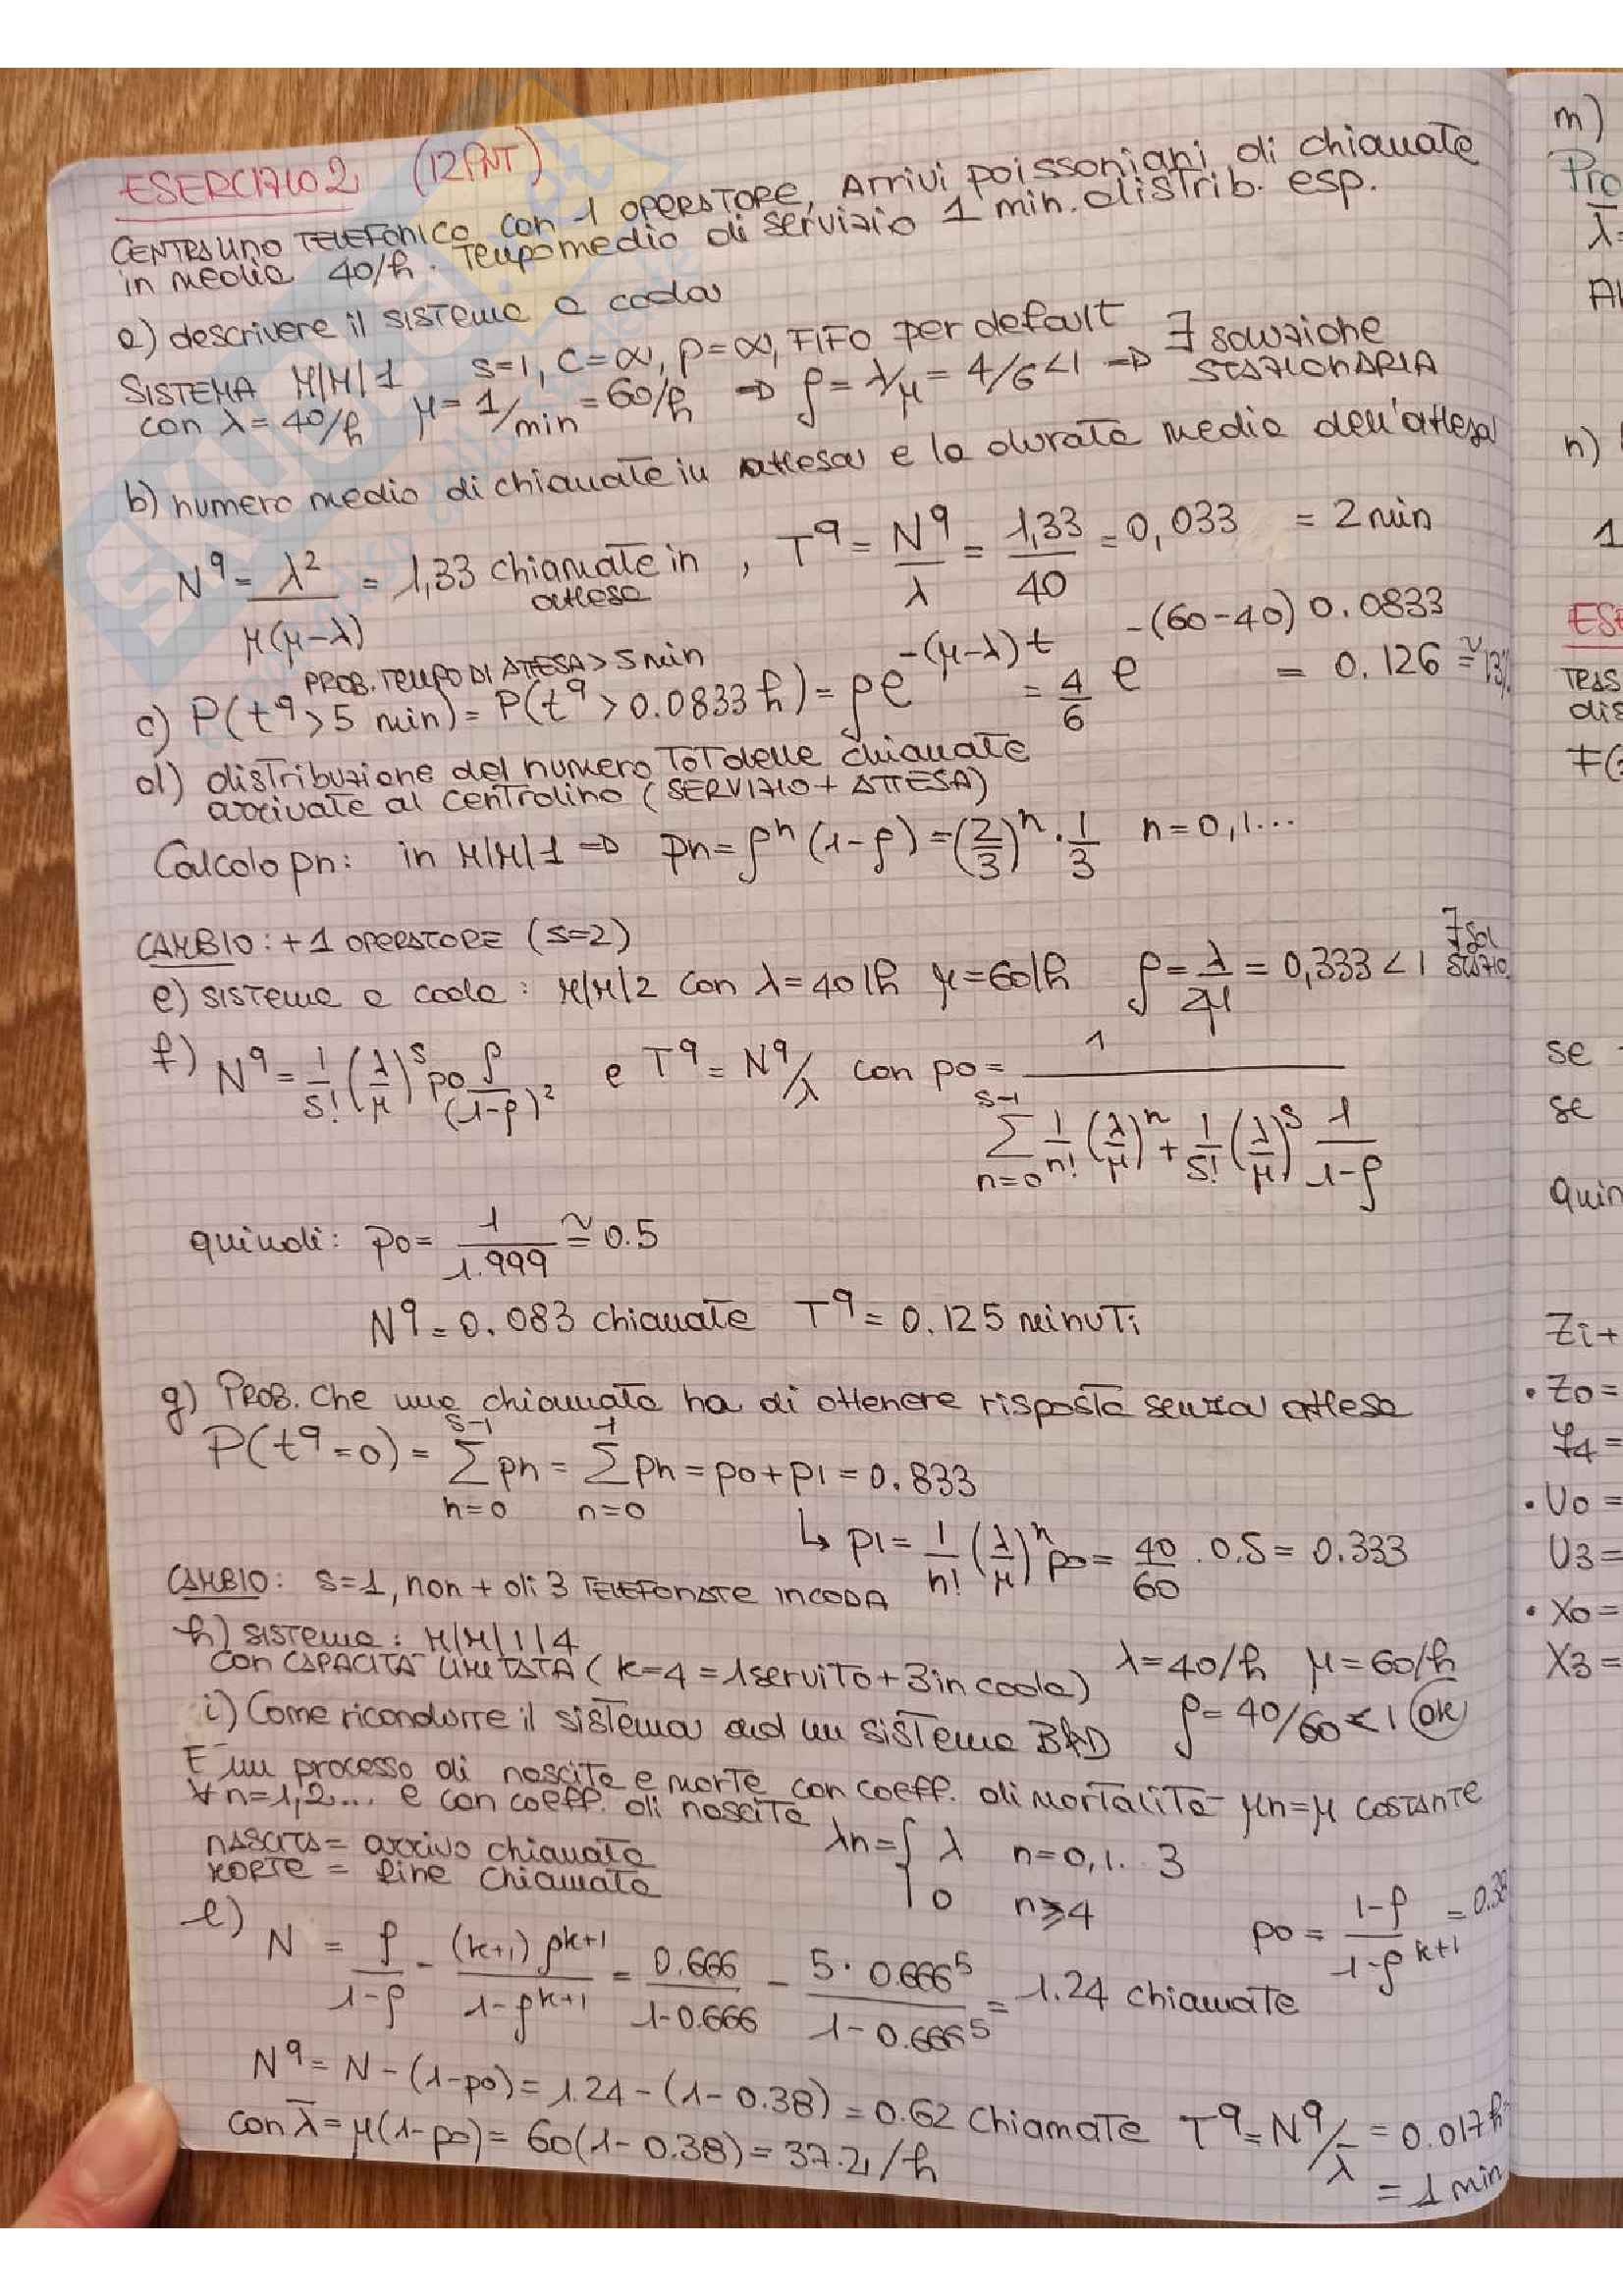 ESERCIZIO 2 (12 PNT)
CENTRALINO TELEFONICO con 1 OPERATORE, Arrivi poissoniani di chiamate
in media 40/h. Tempo medio di servizio 1 min. distrib. esp.
a) descrivere il sistema a coda
SISTEMA M/M/1 s=1, C=∞, p=∞, FIFO per default
con λ=40/h μ=1/min=60/h => ρ=λ/μ=4/6<1 => ∃ soluzione STAZIONARIA
b) numero medio di chiamate in attesa e la durata media dell'attesa
N^q = λ²/(μ(μ-λ)) = 1,33 chiamate in attesa, T^q = N^q/λ = 1,33/40 = 0,033 = 2 min
PROB. TEMPO DI ATTESA > 5 min
c) P(t^q > 5 min) = P(t^q > 0.0833 h) = ρe^-(μ-λ)t = 4/6 e^-(60-40)0.0833 = 0.126 ≅ 13%
d) distribuzione del numero TOT delle chiamate
arrivate al centrolino (SERVIZIO + ATTESA)
Calcolo pn: in M/M/1 => pn = ρ^n (1-ρ) = (2/3)^n · 1/3 n=0,1...
CAMBIO: +1 OPERATORE (s=2)
e) sistema a coda: M/M/2 con λ=40/h μ=60/h ρ=λ/2μ = 0,333<1 ∃ sol stazio.
f) N^q = 1/s! (λ/μ)^s p0 ρ/(1-ρ)² e T^q = N^q/λ con p0 = 1/(∑_{n=0}^{s-1} 1/n! (λ/μ)^n + 1/s! (λ/μ)^s 1/(1-ρ))
quindi: p0 = 1/1.999 ≅ 0.5
N^q = 0.083 chiamate T^q = 0.125 minuti
g) PROB. Che una chiamata ha di ottenere risposta senza attesa
P(t^q=0) = ∑_{n=0}^{s-1} pn = ∑_{n=0}^{1} pn = p0+p1 = 0.833
↳ p1 = 1/n! (λ/μ)^n p0 = 40/60 · 0.5 = 0.333
CAMBIO: s=1, non + di 3 TELEFONATE IN CODA
h) sistema: M/M/1/4
con CAPACITA' LIMITATA (k=4 = 1 servito + 3 in coda) λ=40/h μ=60/h
i) Come ricondurre il sistema ad un sistema B&D ρ=40/60<1 OK
E' un processo di nascita e morte con coeff. di mortalità μn=μ COSTANTE
∀ n=1,2... e con coeff. di nascita
λn = { λ n=0,1.. 3
0 n≥4
NASCITA = arrivo chiamata
MORTE = fine chiamata
l) N = ρ/(1-ρ) - (k+1)ρ^k+1/(1-ρ^k+1) = 0.666/(1-0.666) - 5·0.666^5/(1-0.666^5) = 1.24 chiamate
p0 = (1-ρ)/(1-ρ^k+1) = 0.38
N^q = N-(1-p0) = 1.24-(1-0.38) = 0.62 Chiamate T^q = N^q/λ̄ = 0.017 h
con λ̄ = μ(1-p0) = 60(1-0.38) = 37.2/h
= 1 min
m)
λ=
n)
1
dis
se
se
Zi+
• Z0=
Y4=
• U0=
U3=
• X0=
X3=